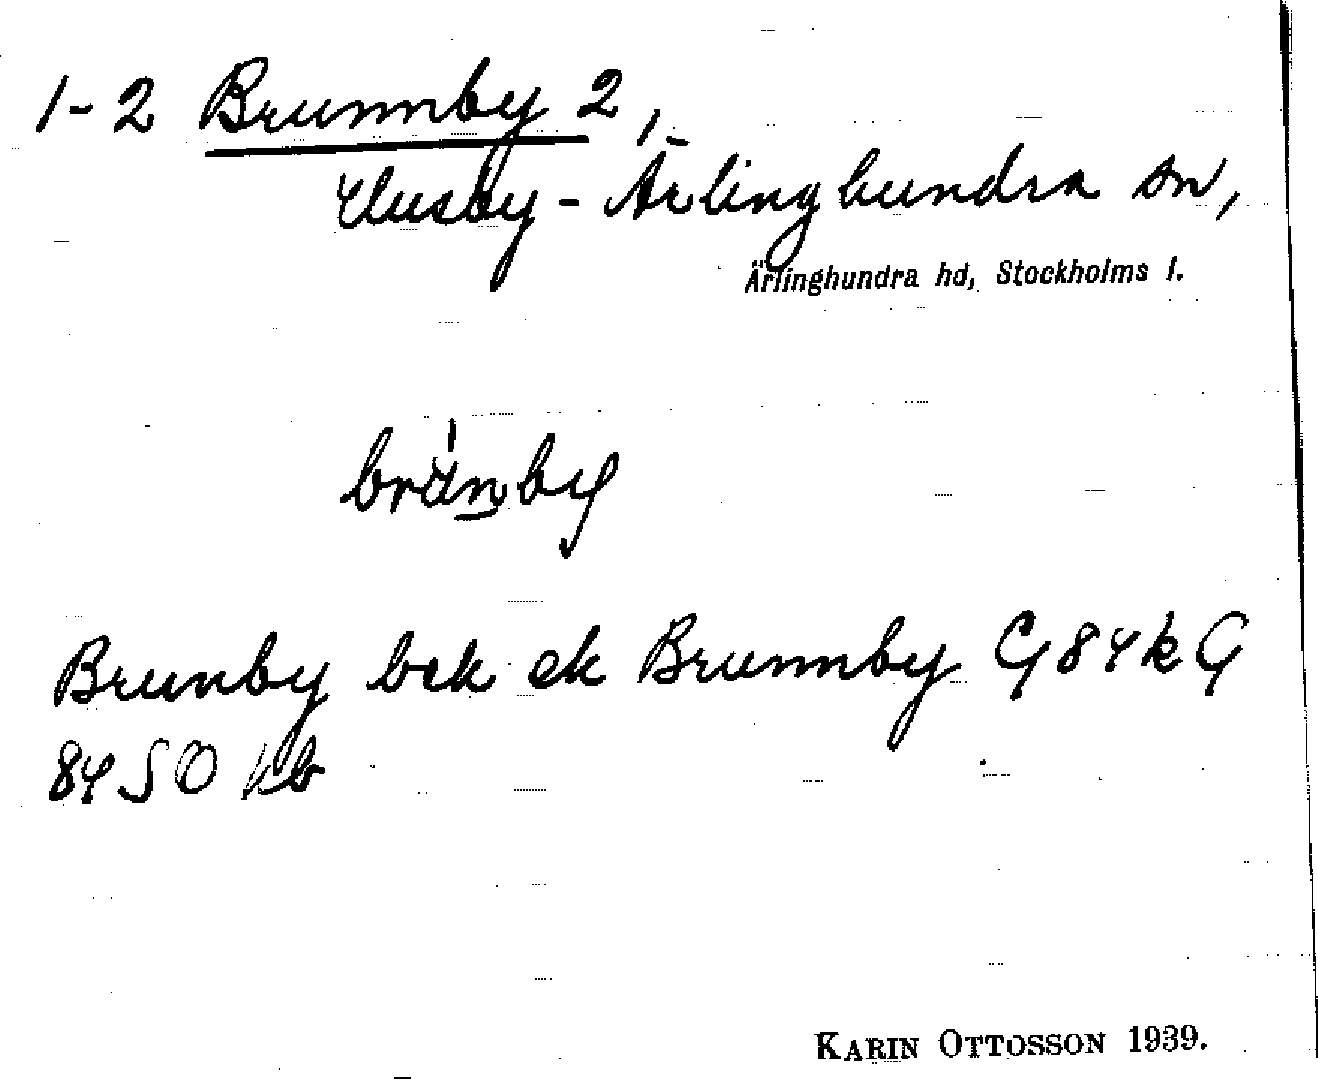 1-2 Brunnby 2,
Husby-Ärlinghundra sn,
Ärlinghundra hd, Stockholms l.
brünby
Brunby bek ek Brunnby G84kG
84 SO kb
KARIN OTTOSSON 1939.